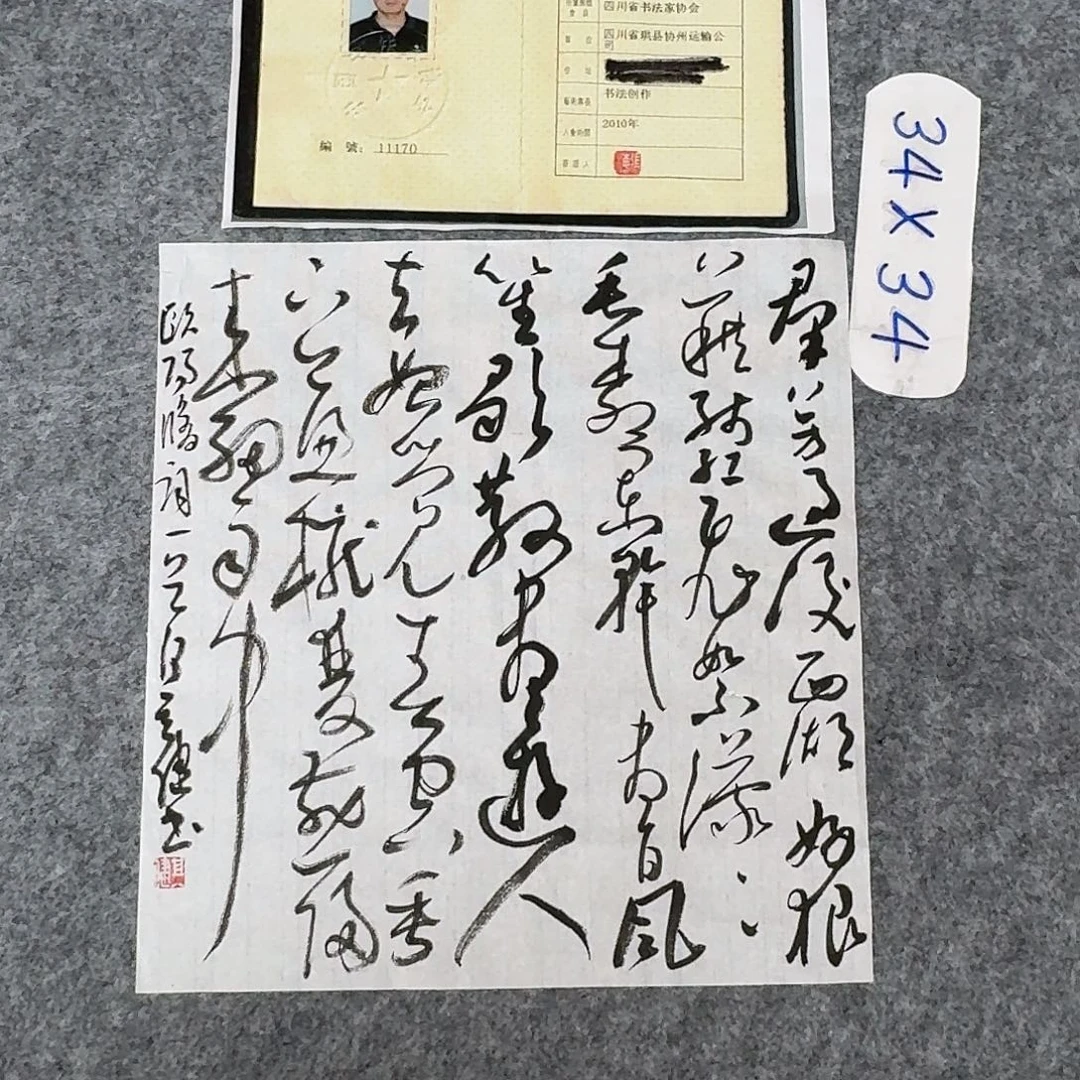 四川省书法家协会
四川省珙县协州运输公
司
书法创作
2010年
編 號: 11170
34 X 34
群芳过後西湖好狼
藉残红飞絮濛濛
垂柳阑干尽日风
笙歌散尽遊人
去始觉春空垂
下帘栊双燕归
来细雨中
欧阳脩词一首